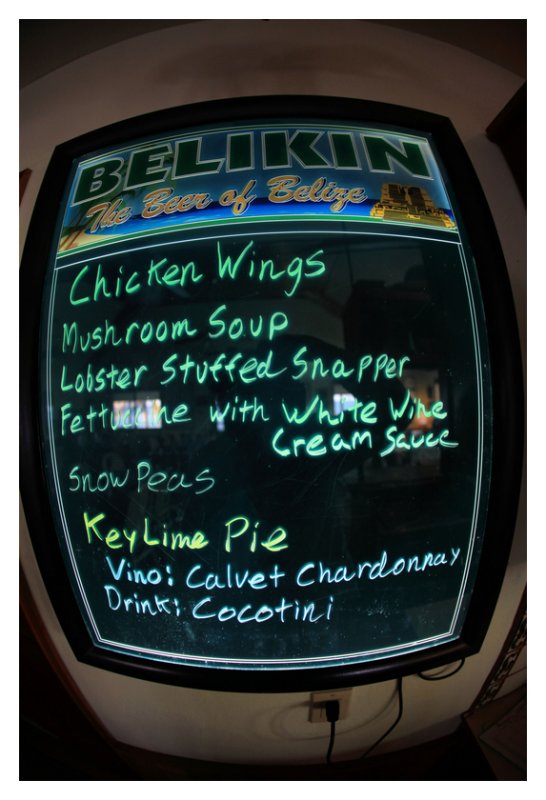 BELIKIN
The Beer of Belize
Chicken Wings
Mushroom Soup
Lobster Stuffed Snapper
Fettuccine with White Wine
Cream Sauce
Snow Peas
Key Lime Pie
Vino: Calvet Chardonnay
Drink: Cocotini